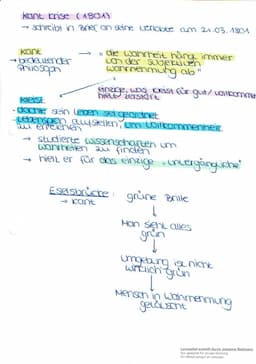 Kant Krise (1801)
→ schreibt in Brief an seine Verlobte am 21.03.1801
Kant
→ bedeutender Philosoph
→ "die Wahrheit hängt immer
von der subjektiven
Wahrnehmung ab"
einzige, was Kleist für gut/vollkommen
hielt zerstört
Kleist
- dachte sein Leben sei geordnet
- Lebensplan aufstellen, um Vollkommenheit
zu erreichen
→ studierte Wissenschaften um
Wahrheiten zu finden
→ hielt er für das einzige "unvergängliche"
Eselsbrücke: grüne Brille
→ Kant
Man sieht alles
grün
Umgebung ist nicht
wirklich grün
Mensch in Wahrnehmung
getäuscht